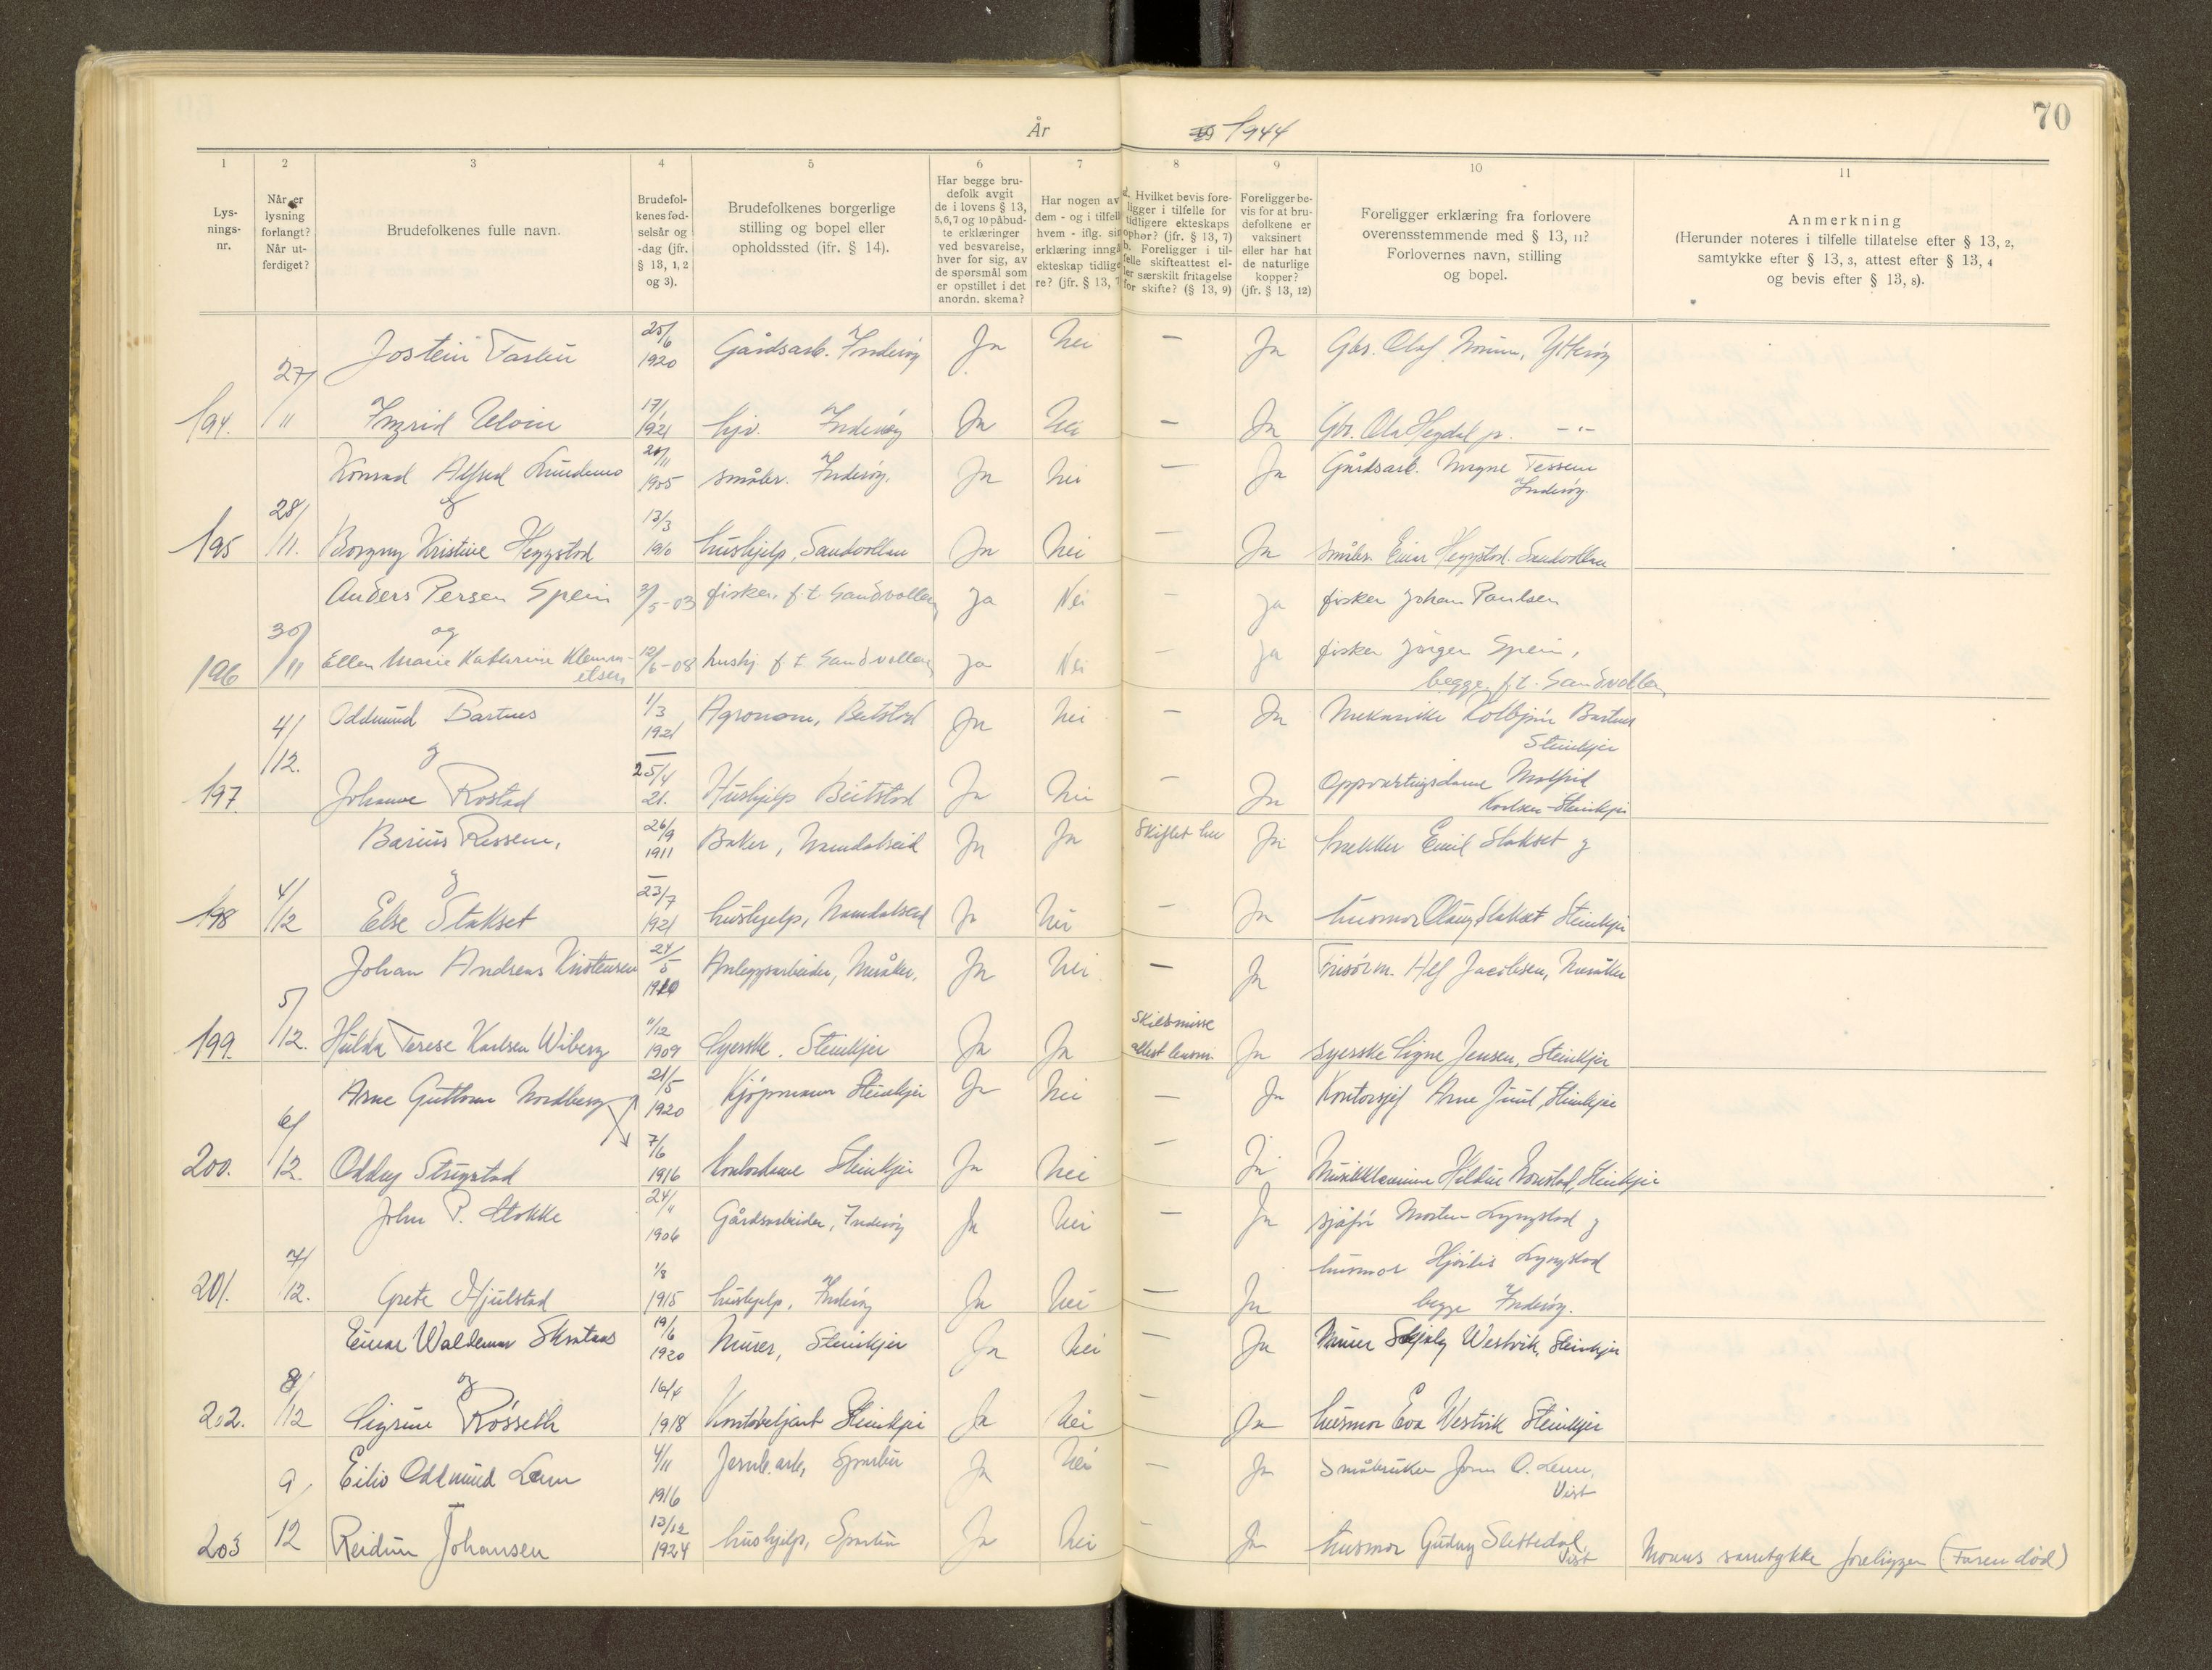 År 1944
70
1 2 3 4 5 6 7 8 9 10 11
Lys-
nings-
nr.
Når er
lysning
forlangt?
Når ut-
ferdiget?
Brudefolkenes fulle navn.
Brudefol-
kenes fød-
selsår og
-dag (jfr.
§ 13, 1, 2
og 3).
Brudefolkenes borgerlige
stilling og bopel eller
opholdssted (jfr. § 14).
Har begge bru-
defolk avgit
de i lovens § 13,
5, 6, 7 og 10 påbud-
te erklæringer
ved besvarelse,
hver for sig, av
de spørsmål som
er opstillet i det
anordn. skema?
Har nogen av
dem - og i tilfell
hvem - iflg. sin
erklæring inngå
ekteskap tidlige
re? (jfr. § 13, 7
Hvilket bevis fore-
ligger i tilfelle for
tidligere ekteskaps
ophør? (jfr. § 13, 7)
b. Foreligger i til-
felle skifteattest el-
ler særskilt fritagelse
for skifte? (§ 13, 9)
Foreligger be-
vis for at bru-
defolkene er
vaksinert
eller har hat
de naturlige
kopper?
(jfr. § 13, 12)
Foreligger erklæring fra forlovere
overensstemmende med § 13, 11?
Forlovernes navn, stilling
og bopel.
Anmerkning
(Herunder noteres i tilfelle tillatelse efter § 13, 2,
samtykke efter § 13, 3, attest efter § 13, 4
og bevis efter § 13, 8).
Jostein 25/6 1920 Gårdsarb. Inderøy Ja Nei — Ja Gbr. Olaf Ytterøy
194. 27/11 Ingrid 17/1 1921 hjv. Inderøy Ja Nei — Ja Gbr. Ola Hegdal jr. -"-
Konrad Alfred Lundemo 1905 småbr. Inderøy. Ja Nei — Ja Gårdsarb. Magne Tessem
Inderøy.
og
195 28/11. Borgny Kristine Heggstad 13/3 1910 hushjelp, Sandvollan Ja Nei — Ja småbr. Einar Heggstad. Sandvollan
Anders Persen Spein 3/5-03 fisker, f.t. Sandvollan Ja Nei — Ja fisker Johan Paulsen
og
196 30/11 Ellen Marie Kathrine Klemm-
elsen 12/6-08 hushj. f.t. Sandvollan Ja Nei — Ja fisker Jørgen Spein,
begge f.t. Sandvollan
Oddmund Bartnes 1/3 1921 Agronom, Beitstad Ja Nei — Ja Mekaniker Kolbjørn Bartnes
Steinkjer
og
197 4/12. Johanne Rostad 25/4 21. Hushjelp Beitstad Ja Nei — Ja Oppvartningsdame Malfrid
Karlsen - Steinkjer
Barius Ressem, 26/9 1911 Baker, Namdalseid Ja Ja Skiftet Ja Emil Slakset og
og
198 4/12 Else Slakset 23/7 1921 hushjelp, Namdalseid Ja Nei — Ja husmor Olaug Slakset Steinkjer
Johan Andreas Kristensen 24/5 Anleggsarbeider, Meråker. Ja Nei — Ja Frisørm. Alf Jacobsen, Meråker
199. 5/12. Hulda Terese Karlsen Wiberg 11/12 1909 Syerske. Steinkjer Ja Ja Skilsmisse
attest Ja syerske Signe Jensen, Steinkjer
Arne Guttorm Nordberg 21/5 1920 Kjøpmann Steinkjer Ja Nei — Ja Kontorsjef Arne Juul, Steinkjer
200. 6/12. Oddny Strugstad 7/6 1916 Kontordame Steinkjer Ja Nei — Ja Steinkjer
John P. Stokke 24/11 1906 Gårdsarbeider, Inderøy Ja Nei — Ja sjåfør Morten Lyngstad og
husmor Hjørdis Lyngstad
201. 7/12. Grete Hjulstad 1/8 1915 hushjelp, Inderøy Ja Nei — Ja begge Inderøy.
Einar Waldemar Skrataas 19/6 1920 Murer, Steinkjer Ja Nei — Ja Murer Westvik, Steinkjer
og
202. 8/12 Sigrun Rosseth 16/4 1918 Kontorbetjent Steinkjer Ja Nei — Ja husmor Eva Westvik Steinkjer
Eilif Oddmund Lein 4/11 1916 Jernb.arb, Sparbu Ja Nei — Ja Småbruker John O. Lein,
Vist
203 9/12 Reidun Johansen 13/12 1924 hushjelp, Sparbu Ja Nei — Ja husmor Gudny Slettedal
Vist Morens samtykke foreligger (Faren død)